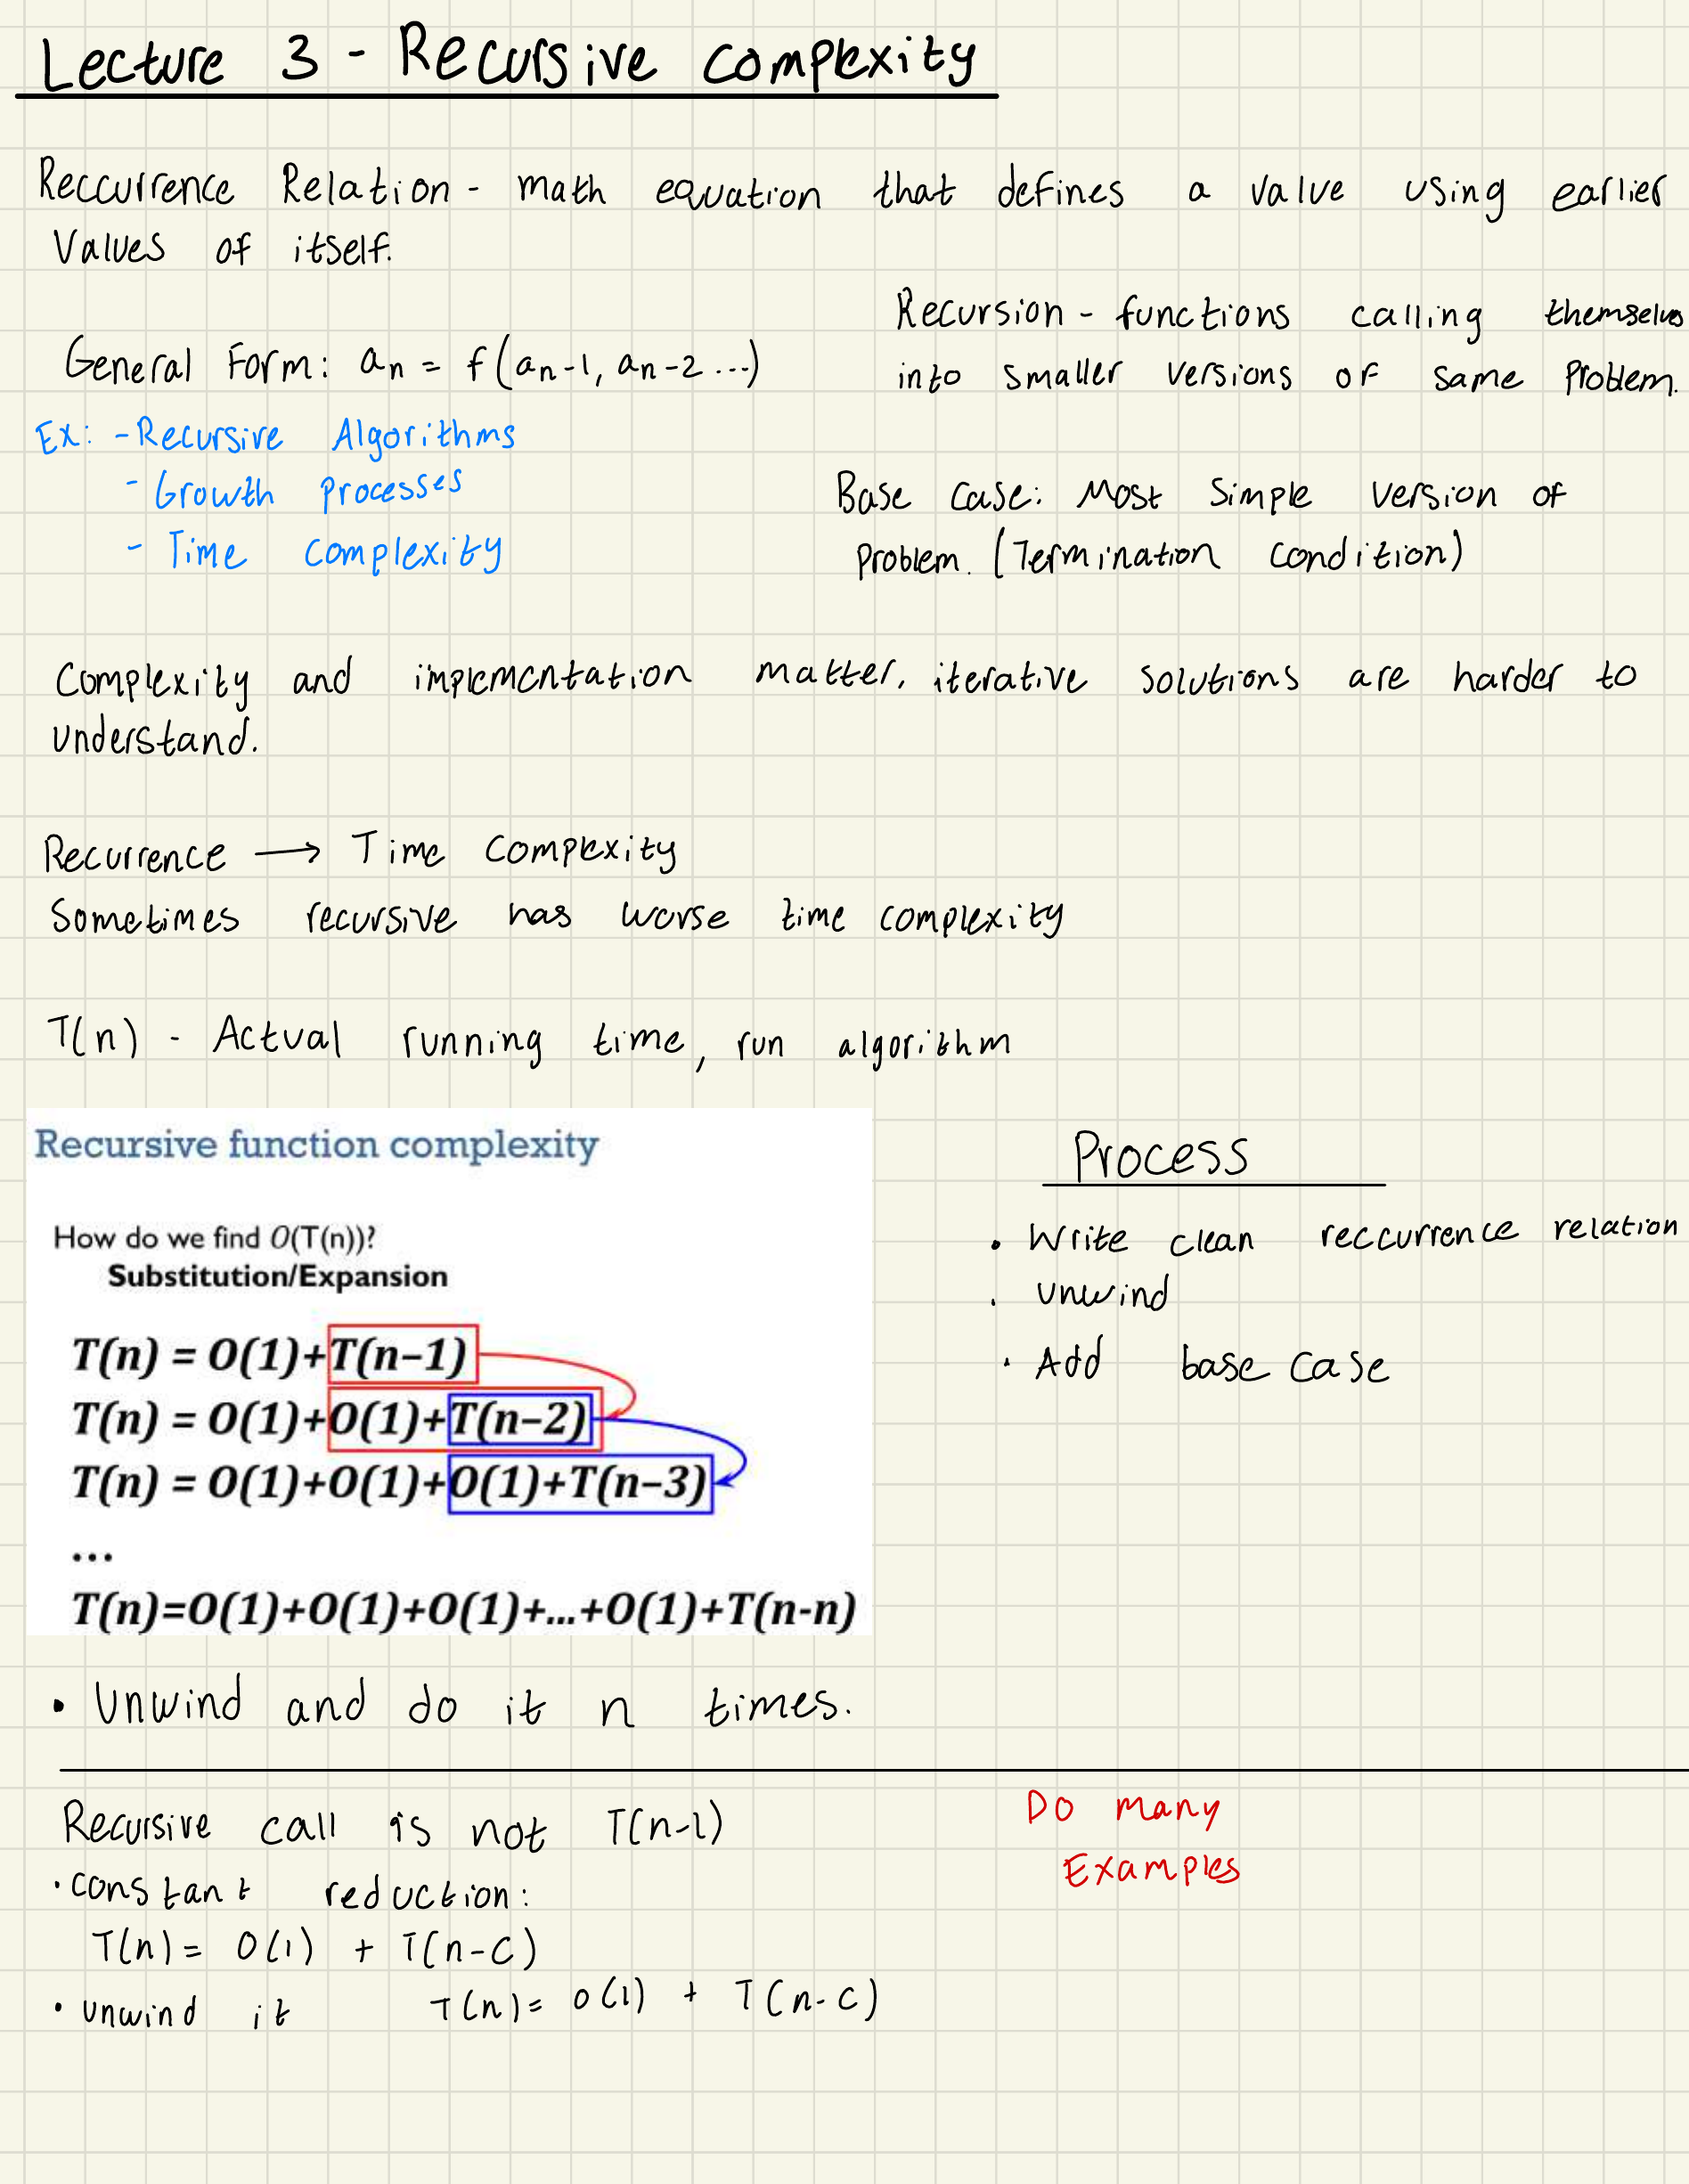 Lecture 3 - Recursive complexity
Reccurrence Relation - math equation that defines a value using earlier
values of itself.
General Form: an = f(an-1, an-2 ...)
Ex: - Recursive Algorithms
- Growth processes
- Time complexity
Recursion - functions calling themselves
into smaller versions of same problem.
Base case: Most simple version of
problem. (Termination condition)
Complexity and implementation matter, iterative solutions are harder to
understand.
Recurrence → Time Complexity
Sometimes recursive has worse time complexity
T(n) - Actual running time, run algorithm
Recursive function complexity
How do we find O(T(n))?
Substitution/Expansion
T(n) = O(1)+T(n−1)
T(n) = O(1)+O(1)+T(n−2)
T(n) = O(1)+O(1)+O(1)+T(n−3)
...
T(n)=O(1)+O(1)+O(1)+...+O(1)+T(n-n)
Process
• Write clean reccurrence relation
• unwind
• Add base case
• Unwind and do it n times.
Recursive call is not T(n-1)
• constant reduction:
T(n) = O(1) + T(n-c)
• unwind it T(n) = O(1) + T(n-c)
Do many
Examples